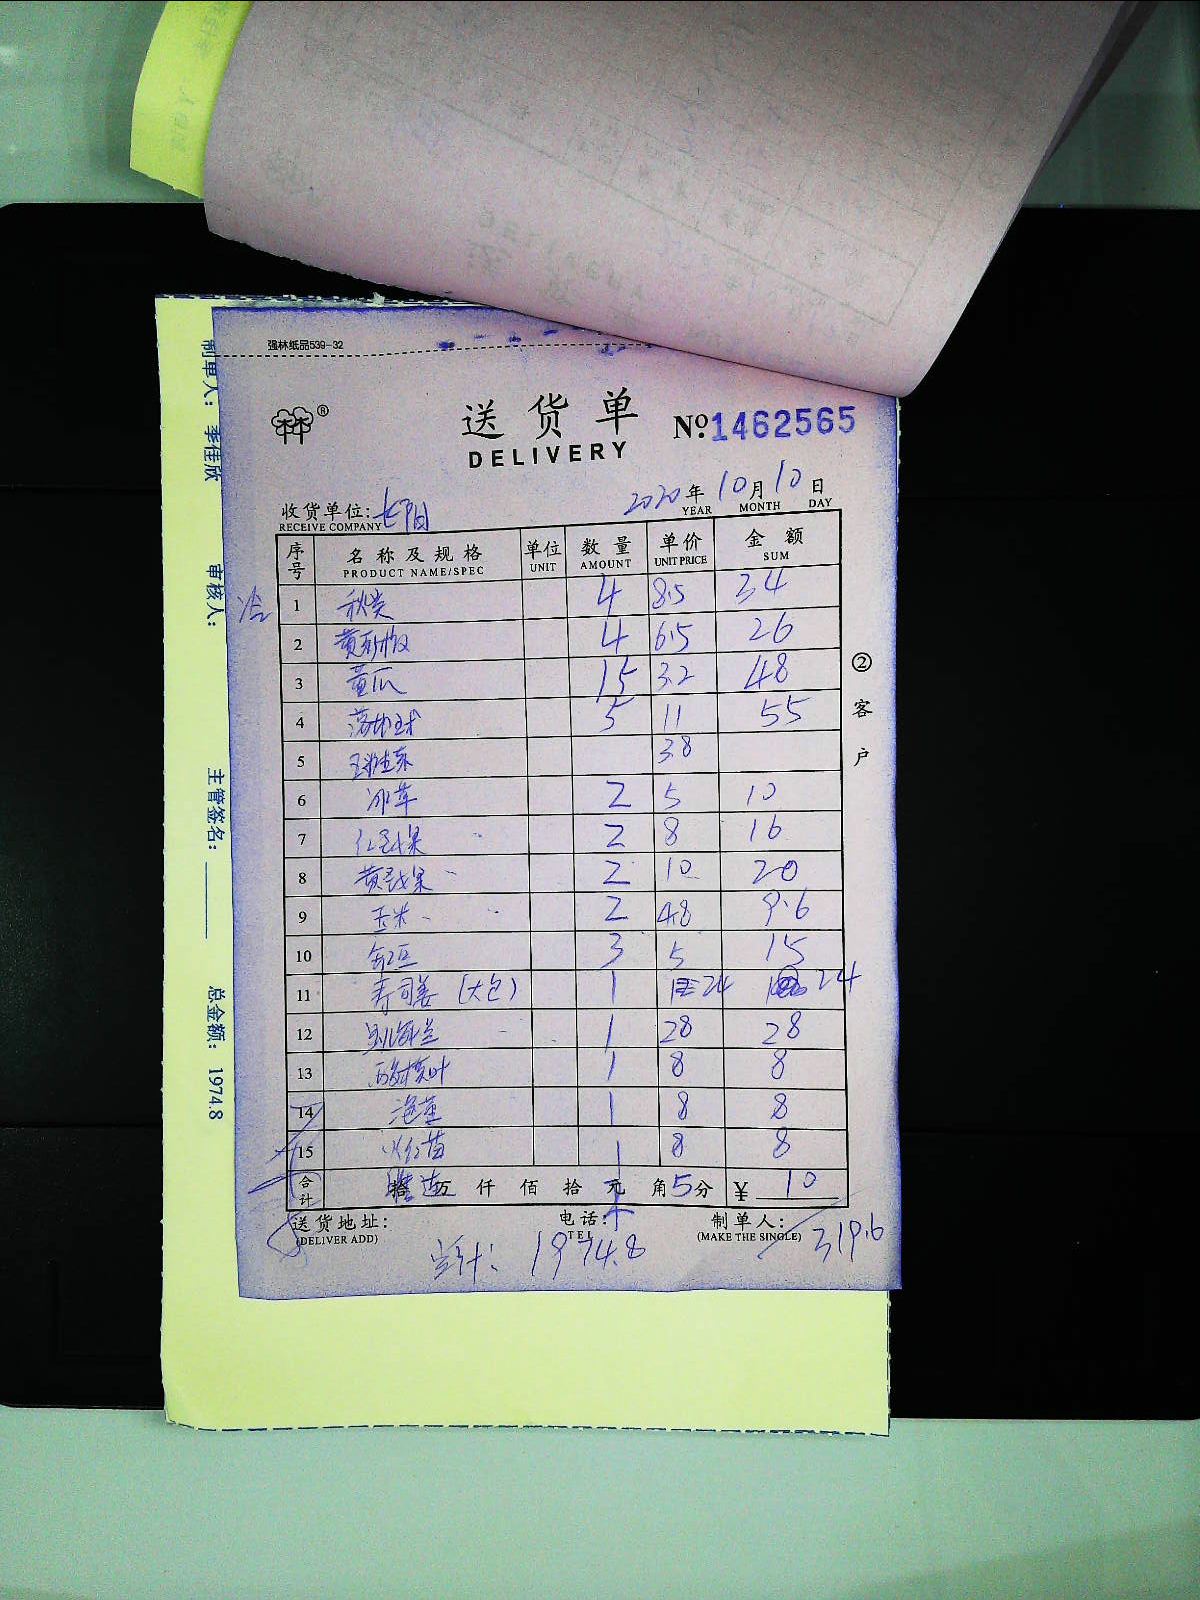 强林纸品539-32
林®
送货单 №1462565
DELIVERY
收货单位: 2020年10月10日
RECEIVE COMPANY YEAR MONTH DAY
序号 名称及规格 单位 数量 单价 金额
PRODUCT NAME/SPEC UNIT AMOUNT UNIT PRICE SUM
1 秋葵 4 8.5 34
2 4 6.5 26
3 黄瓜 15 3.2 48
4 5 11 55
5 3.8
6 冰草 2 5 10
7 2 8 16
8 2 10 20
9 玉米 2 4.8 9.6
10 3 5 15
11 寿司姜(大包) 1 24 24
12 1 28 28
13 1 8 8
14 1 8 8
15 苗 1 8 8
合计 拾万仟佰拾元角5分 ¥10
送货地址: 电话: 制单人:
(DELIVER ADD) TEL (MAKE THE SINGLE) 319.6
1974.8
②客户
制单人: 季佳欣 审核人: 主管签名: 总金额: 1974.8